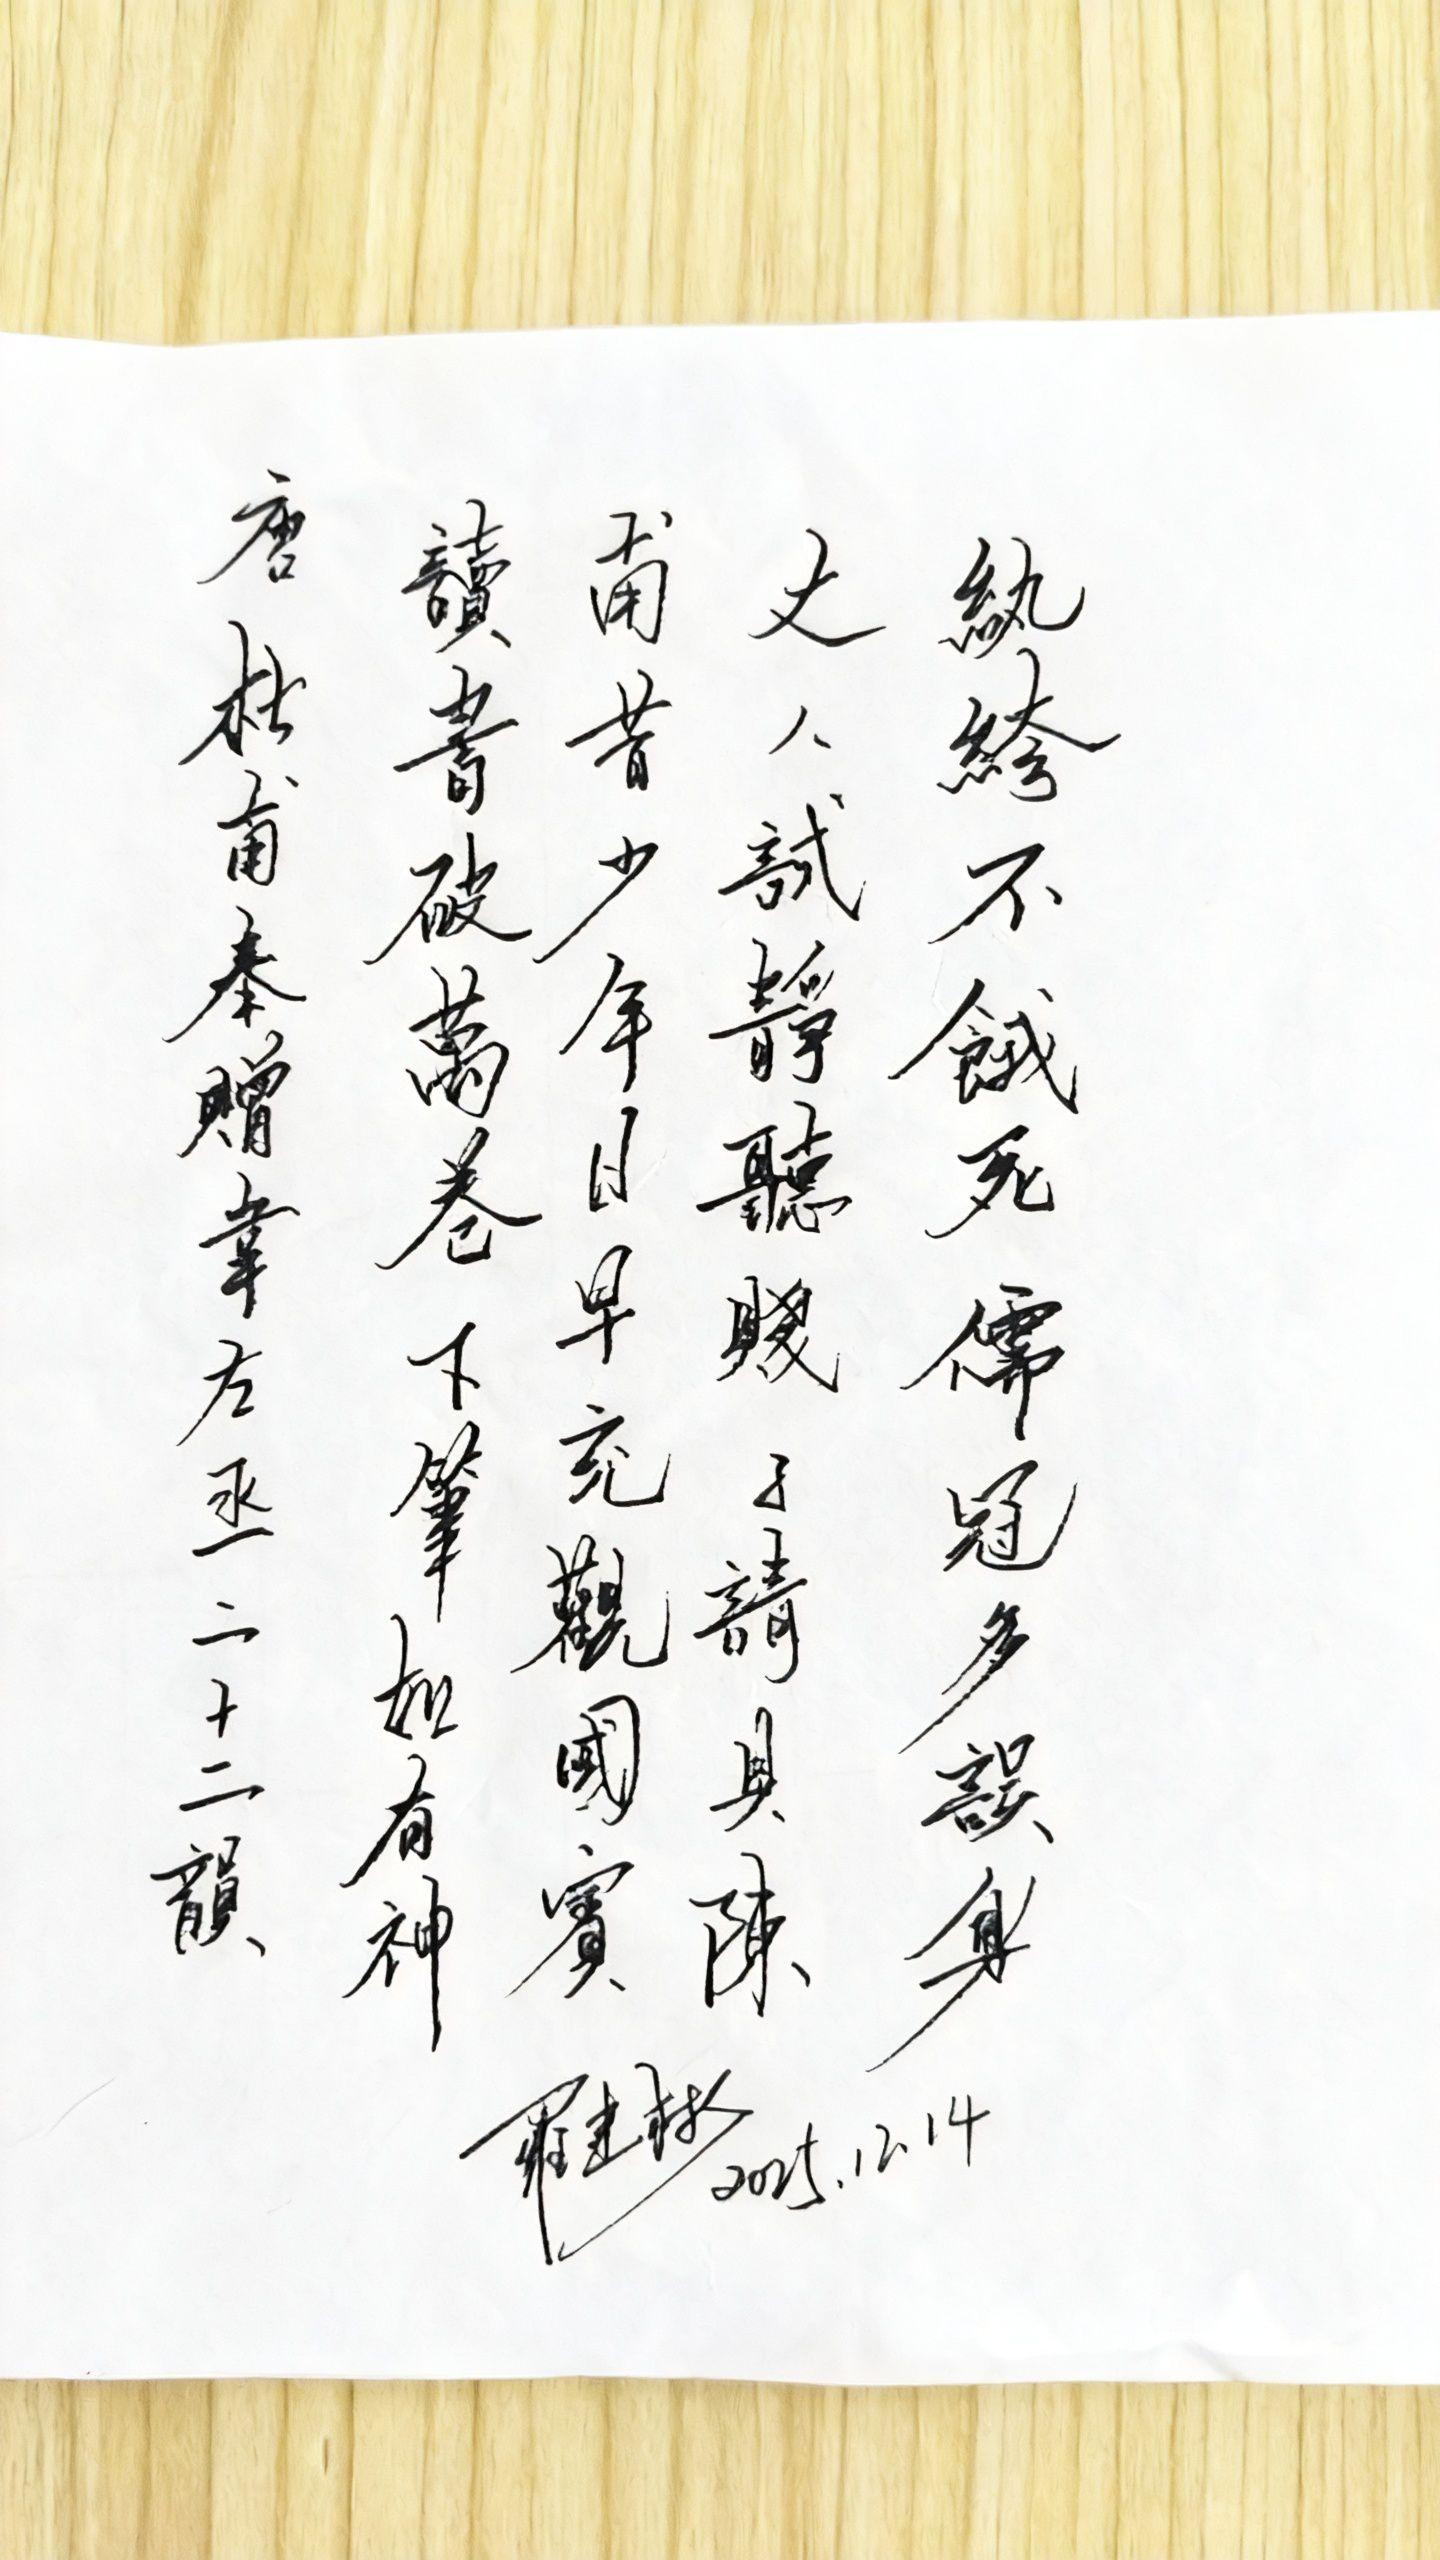 紈絝不餓死儒冠多誤身
丈人試靜聽賤子請具陳
甫昔少年日早充觀國賓
讀書破萬卷下筆如有神
唐杜甫奉贈韋左丞二十二韻
羅建
2025.12.14